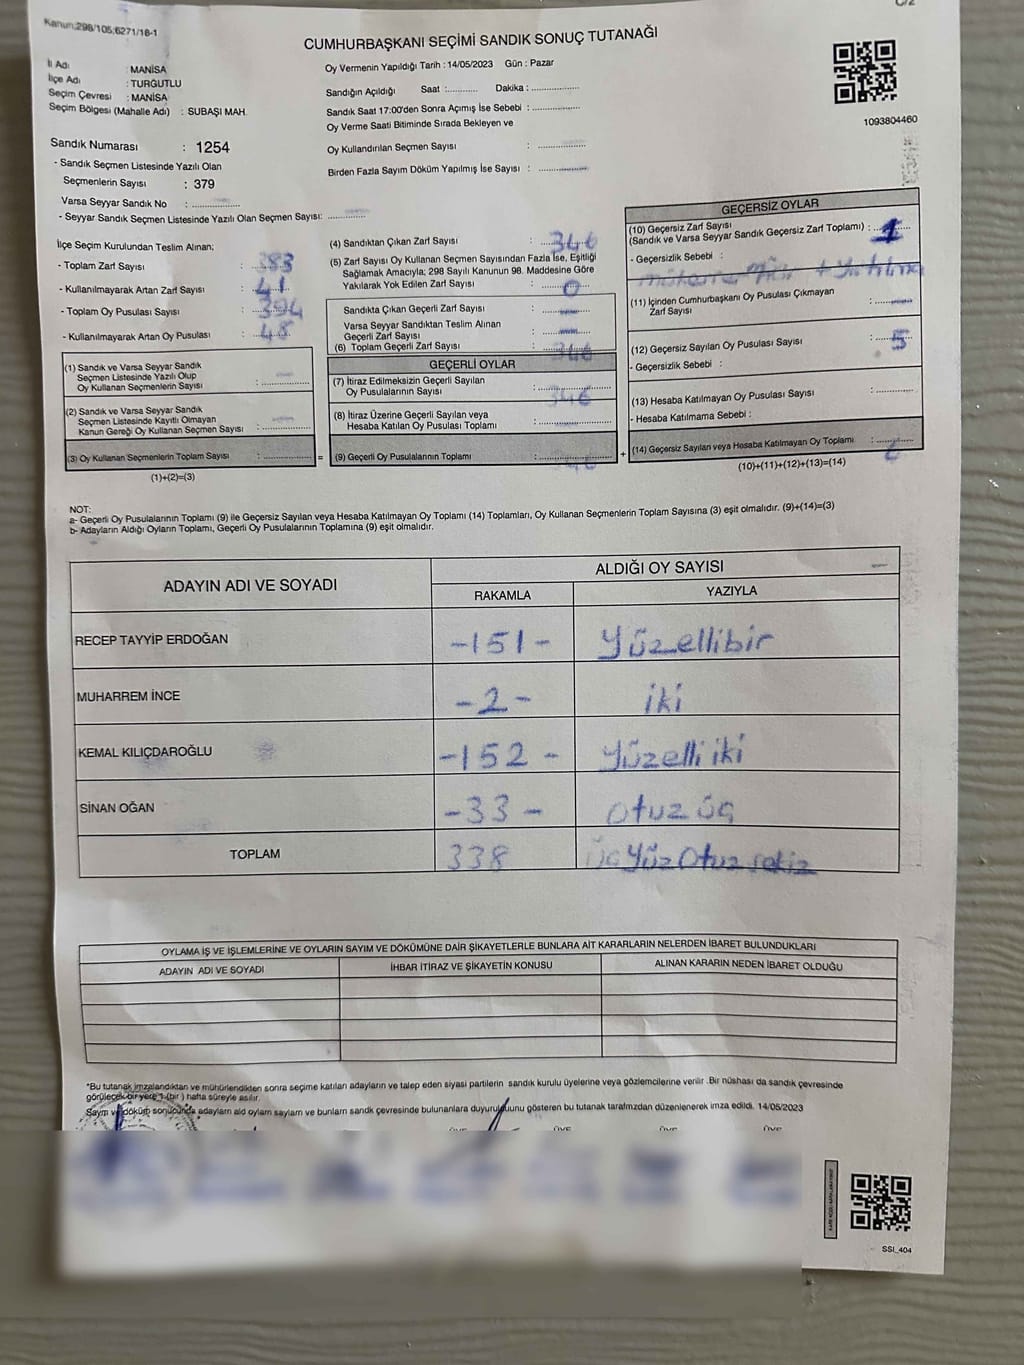 Kanun;298/105;6271/18-1
C/2
CUMHURBAŞKANI SEÇİMİ SANDIK SONUÇ TUTANAĞI
İl Adı : MANİSA
İlçe Adı : TURGUTLU
Seçim Çevresi : MANİSA
Seçim Bölgesi (Mahalle Adı) : SUBAŞI MAH.
Oy Vermenin Yapıldığı Tarih : 14/05/2023 Gün : Pazar
Sandığın Açıldığı Saat :........... Dakika : ...............
Sandık Saat 17:00'den Sonra Açımış İse Sebebi : ...............
Oy Verme Saati Bitiminde Sırada Bekleyen ve
Oy Kullandırılan Seçmen Sayısı : ...............
Birden Fazla Sayım Döküm Yapılmış İse Sayısı : ...............
1093804460
Sandık Numarası : 1254
- Sandık Seçmen Listesinde Yazılı Olan
Seçmenlerin Sayısı : 379
Varsa Seyyar Sandık No : ...............
- Seyyar Sandık Seçmen Listesinde Yazılı Olan Seçmen Sayısı: ...............
İlçe Seçim Kurulundan Teslim Alınan;
- Toplam Zarf Sayısı : 383
- Kullanılmayarak Artan Zarf Sayısı : 41
- Toplam Oy Pusulası Sayısı : 394
- Kullanılmayarak Artan Oy Pusulası : 48
(1) Sandık ve Varsa Seyyar Sandık
Seçmen Listesinde Yazılı Olup
Oy Kullanan Seçmenlerin Sayısı : ...............
(2) Sandık ve Varsa Seyyar Sandık
Seçmen Listesinde Kayıtlı Olmayan
Kanun Gereği Oy Kullanan Seçmen Sayısı : ...............
(3) Oy Kullanan Seçmenlerin Toplam Sayısı : ............... =
(1)+(2)=(3)
(4) Sandıktan Çıkan Zarf Sayısı : 346
(5) Zarf Sayısı Oy Kullanan Seçmen Sayısından Fazla İse, Eşitliği
Sağlamak Amacıyla; 298 Sayılı Kanunun 98. Maddesine Göre
Yakılarak Yok Edilen Zarf Sayısı : 0
Sandıkta Çıkan Geçerli Zarf Sayısı : -
Varsa Seyyar Sandıktan Teslim Alınan
Geçerli Zarf Sayısı : -
(6) Toplam Geçerli Zarf Sayısı : 346
GEÇERLİ OYLAR
(7) İtiraz Edilmeksizin Geçerli Sayılan
Oy Pusulalarının Sayısı : 346
(8) İtiraz Üzerine Geçerli Sayılan veya
Hesaba Katılan Oy Pusulası Toplamı : ...............
(9) Geçerli Oy Pusulalarının Toplamı : ............... +
GEÇERSİZ OYLAR
(10) Geçersiz Zarf Sayısı
(Sandık ve Varsa Seyyar Sandık Geçersiz Zarf Toplamı) : 1
- Geçersizlik Sebebi :
(11) İçinden Cumhurbaşkanı Oy Pusulası Çıkmayan
Zarf Sayısı : ...............
(12) Geçersiz Sayılan Oy Pusulası Sayısı : 5
- Geçersizlik Sebebi :
(13) Hesaba Katılmayan Oy Pusulası Sayısı : ...............
- Hesaba Katılmama Sebebi :
(14) Geçersiz Sayılan veya Hesaba Katılmayan Oy Toplamı : 6
(10)+(11)+(12)+(13)=(14)
NOT:
a- Geçerli Oy Pusulalarının Toplamı (9) ile Geçersiz Sayılan veya Hesaba Katılmayan Oy Toplamı (14) Toplamları, Oy Kullanan Seçmenlerin Toplam Sayısına (3) eşit olmalıdır. (9)+(14)=(3)
b- Adayların Aldığı Oyların Toplamı, Geçerli Oy Pusulalarının Toplamına (9) eşit olmalıdır.
ADAYIN ADI VE SOYADI
ALDIĞI OY SAYISI
RAKAMLA YAZIYLA
RECEP TAYYİP ERDOĞAN -151- Yüzellibir
MUHARREM İNCE -2- iki
KEMAL KILIÇDAROĞLU -152- Yüzelli iki
SİNAN OĞAN -33- otuz üç
TOPLAM 338 üç Yüz Otuz sekiz
OYLAMA İŞ VE İŞLEMLERİNE VE OYLARIN SAYIM VE DÖKÜMÜNE DAİR ŞİKAYETLERLE BUNLARA AİT KARARLARIN NELERDEN İBARET BULUNDUKLARI
ADAYIN ADI VE SOYADI İHBAR İTİRAZ VE ŞİKAYETİN KONUSU ALINAN KARARIN NEDEN İBARET OLDUĞU
*Bu tutanak imzalandıktan ve mühürlendikten sonra seçime katılan adayların ve talep eden siyasi partilerin sandık kurulu üyelerine veya gözlemcilerine verilir .Bir nüshası da sandık çevresinde
görülecek bir yere 1 (bir ) hafta süreyle asılır.
Sayım ve döküm sonucunda adayların ald oyların sayların ve bunların sandk çevresinde bulunanlara duyurulduunu gösteren bu tutanak tarafmzdan düzenlenerek imza edildi. 14/05/2023
ÜYE ÜYE ÜYE ÜYE
SSI_404